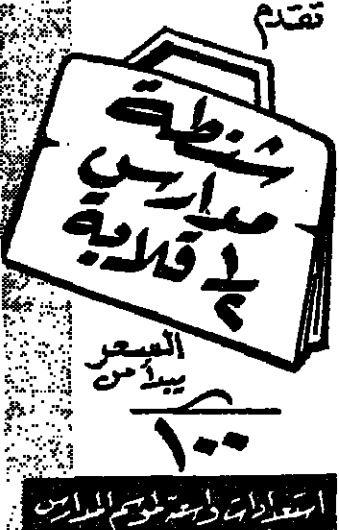 تقدم
شنطة
مدارس
١/٢ قلابة
السعر
يبدأ من
١٠٠
استعدادات واسعة لموسم المدارس